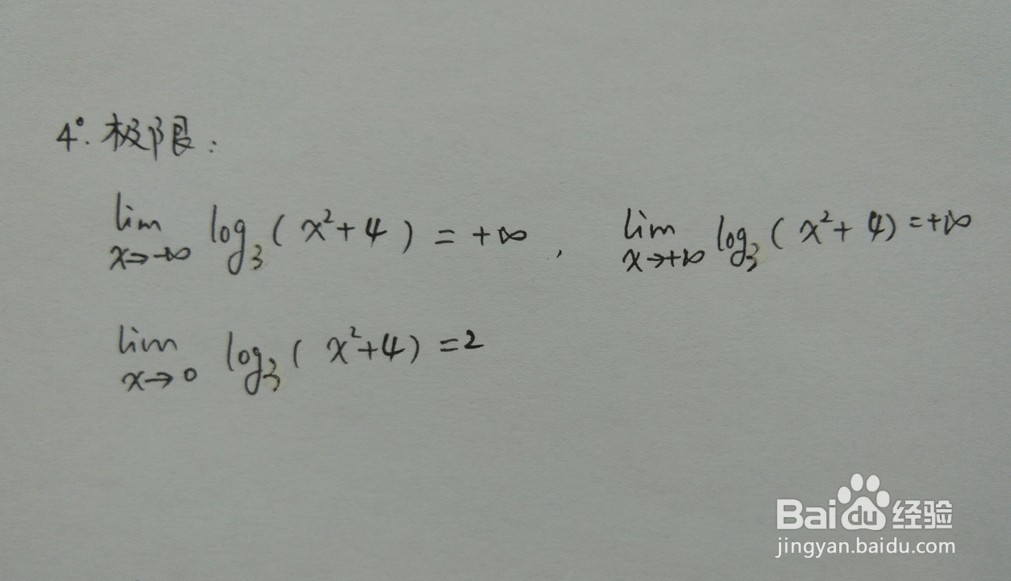 4°. 极限:
lim x→-∞ log₃(x²+4) = +∞, lim x→+∞ log₃(x²+4) = +∞
lim x→0 log₃(x²+4) = 2
Baidu经验
jingyan.baidu.com